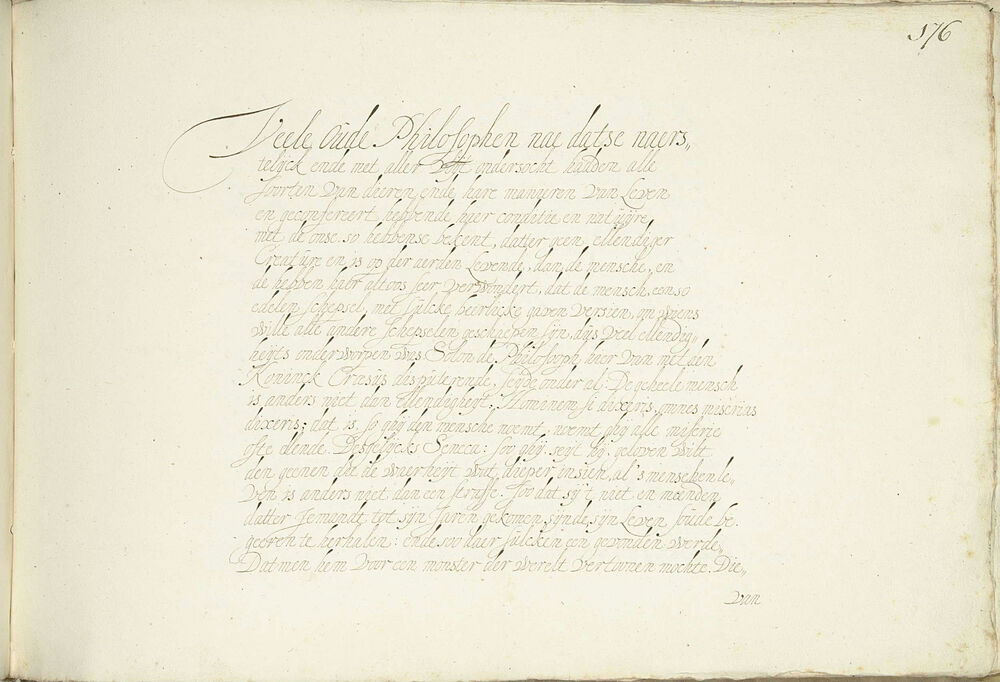 176
Veele Oude Philosophen nae datse naers„
telijck ende met aller vlijt ondersocht hadden alle
soorten van dieren, ende hare manyren van Leven
en geconfereert hebbende haer conditie en natuÿre
met de onse so hebbense bekent, datter geen ellendiger
Creatuÿre en is op der aerden Levende, dan de mensche, en
de hebben haer altoos seer verwondert, dat de mensch, een so
edelen schepsel, met sulcke heerlicke gaven versien, om wiens
wille alle andere schepselen geschaepen sijn, dus veel ellendig„
heÿts onderworpen was Solon de Philosooph hier van met den
Koninck Cresus disputerende, seÿde onder al: De geheele mensch
is anders niet dan Ellendigheÿt; Hominem si dixeris, omnes miserias
dixeris; dat is, so ghÿ den mensche noemt, noemt ghÿ alle miserie
ofte elende. Desgelÿcks Seneca: soo ghÿ, seÿt hÿ, geloven wilt
den geenen die de waerheÿt wat dieper insien, al 's menschen le„
ven is anders niet dan een straffe. soo dat sÿ 't niet en meenden
datter Jemandt tot sijn Jaren gekomen sijnde, sijn Leven soude be„
geeren te herhalen: ende soo daer sulcken een gevonden werde„
Dat men hem voor een monster der werelt vertoonen mochte. Die„
van